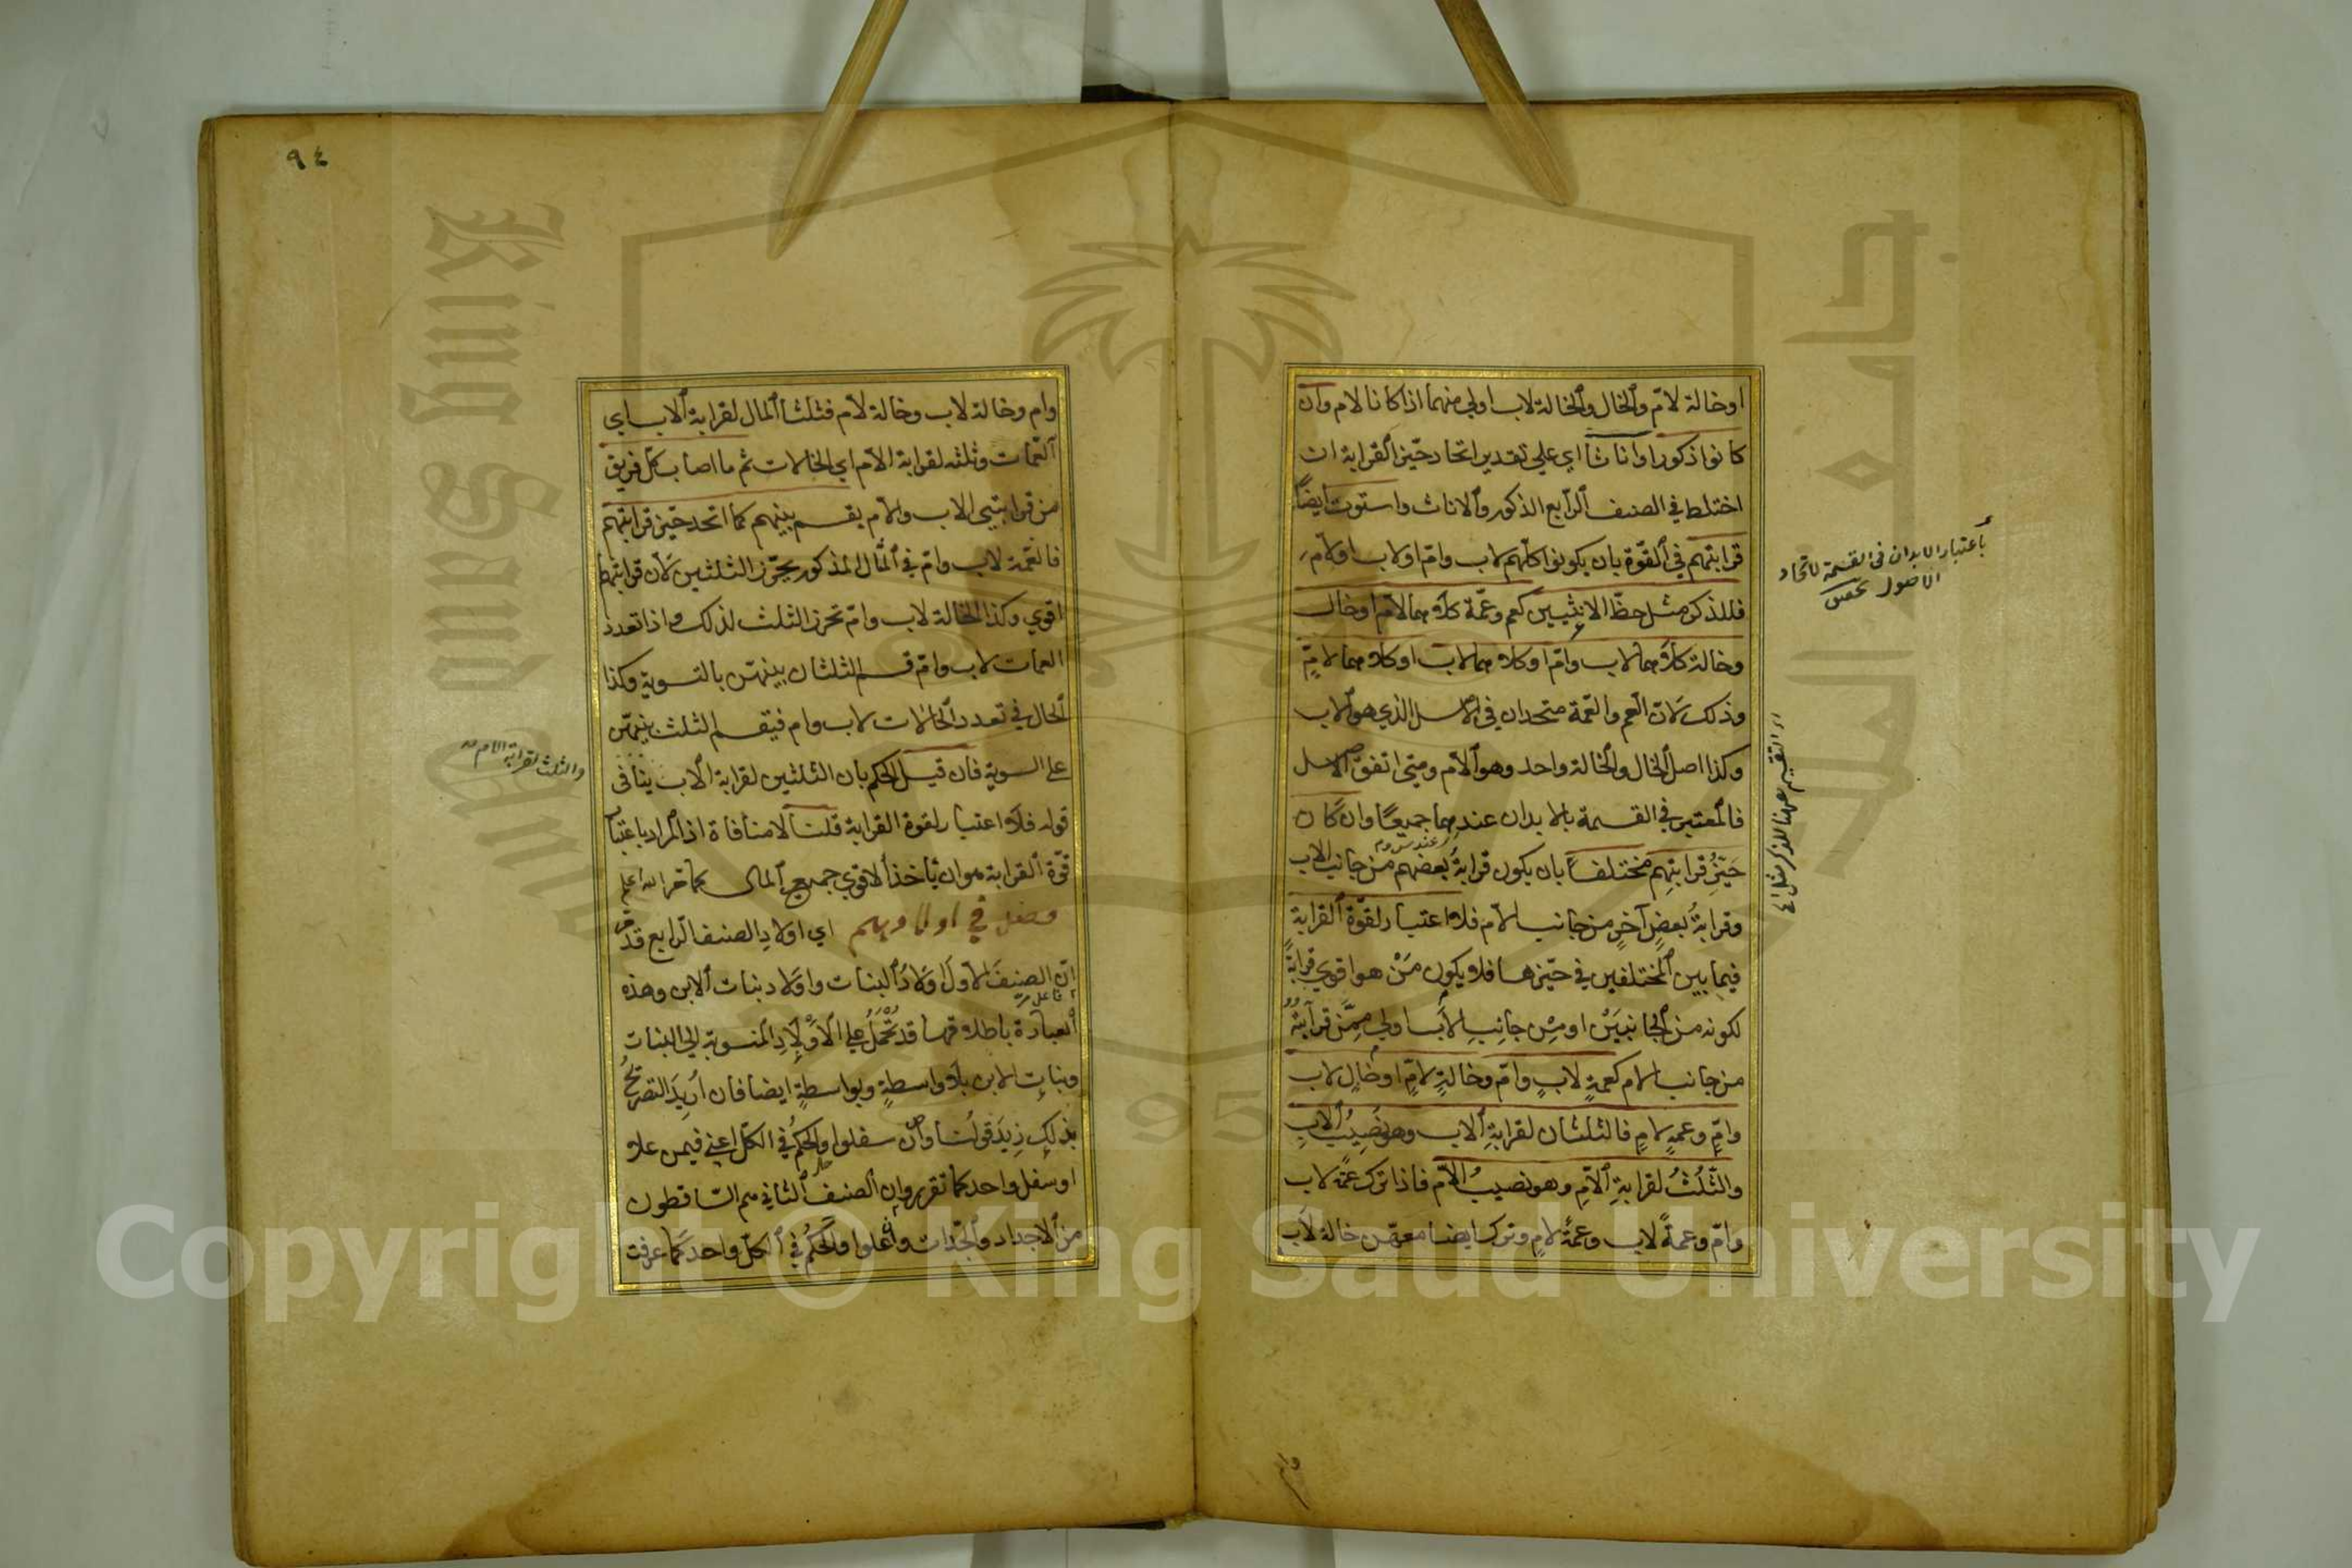 او خالة لامّ والخال والخالة لاب اولي منهما اذا كانا لام وان
كانوا ذكورا واناثا اي علي تقدير اتحاد حيّز القرابة ان
اختلط في الصنف الرّابع الذكور والاناث واستوت ايضاً
قرابتهم في القوّة بان يكونوا كلّهم لاب وامّ او لاب او لامّ
فللذكر مثل حظّ الانثيين كعم وعمّة كلاهما لامّ او خال
وخالة كلاهما لاب وامّ او كلاهما لاب او كلاهما لامّ
وذلك لانّ العم والعمّة متحدان في الاصل الذي هو الاب
وكذا اصل الخال والخالة واحد وهو الام ومتي اتفق الاصل
فالمعتبر في القسمة بالابدان عندهما جميعاً وان كان
حَيّزُ قرابتِهِم مختلفاً بان يكون قرابةُ بعضهم من جانب الاب
وقرابةُ بعضٍ آخرٍ من جانب الامّ فلا اعتبار لقوّة القرابة
فيما بين المختلفين في حيّزهما فلا يكون مَنْ هو اقوي قرابةً
لكونه من الجانبَيْن او مِن جانِبِ الأب اولي مِمَّن قرابتُهُ
من جانب الام كعمةٍ لابٍ وامّ وخالةٍ لامٍّ او خالٍ لاب
وامٍّ وعمةٍ لامٍ فالثلثان لقرابةِ الاب وهو نَصِيبُ الابِ
والثّلُثُ لقرابةِ الامّ وهو نصيبُ الامّ فاذا ترك عمّة لاب
وامّ وعمةً لاب وعمّةً لامٍ وترك ايضا معهنّ خالة لاب
باعتبار الابدان في القسمة لاتحاد
الاصول
التقسيم ههنا للذكر مثل
وام
٩٤
وام وخالة لاب وخالة لام فثلثا المال لقرابة الاب اي
العمّات وثلثه لقرابة الامّ اي الخالات ثم ما اصاب كلّ فريق
من قرابتي الاب والام يقسم بينهم كما اتحد حيّز قرابتهم
فالعمّة لاب وامّ في المثال المذكور تحرز الثلثين لانّ قرابتها
اقوي وكذا الخالة لاب وامّ تحرز الثلث لذلك واذا تعدد
العمات لاب وامّ قسم الثلثان بينهنّ بالتسوية وكذا
الحال في تعدد الخالات لاب وام فيقسم الثلث بينهنّ
علي السوية فان قيل الحكم بان الثلثين لقرابة الاب ينافي
قوله فلا اعتبار لقوة القرابة قلنا لا منافاة اذ المراد باعتبار
قوّة القرابة هو ان يأخذ الاقوي جميع المال كما مرّ الله اعلم
فصل في اولادهم اي اولادِ الصنف الرّابع قد مرّ
انّ الصنِفَ الاول اولادُ البنات واولاد بنات الابن وهذه
العبارة باطلاقها قد تُحْمَلُ علي الاوْلادِ المنسوبة الي البنات
وبناتِ الابن بلا واسطةٍ وبواسطةٍ ايضا فان اُرِيدَ التصريحُ
بذلك زِيدَ قولُنا وان سفلوا والحكمُ في الكلّ اعني فيمن علا
او سفل واحد كما تقرر وان الصنف الثاني هم السّاقطون
من الاجداد والجدّات وان علوا والحكمُ في الكلّ واحد كما عرفت
والثلث لقرابة الام
Copyright © King Saud University
King Saud
جامعة الملك